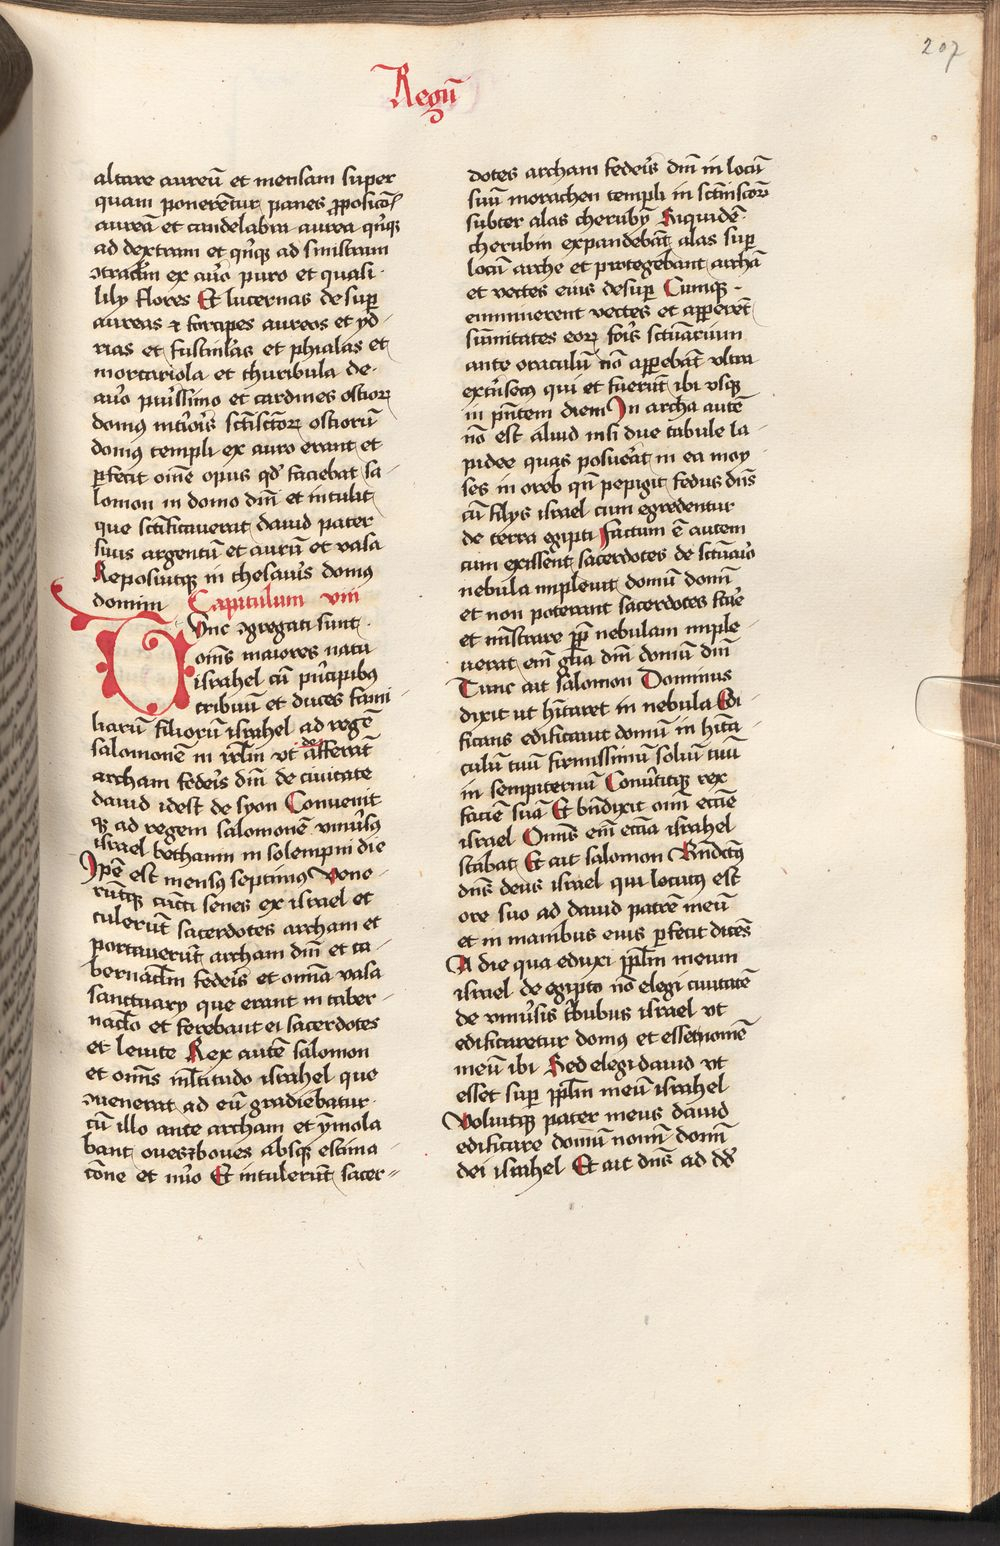 207
Regū
altare aureū et mensam super
quam ponerētur panes ꝓposicōis
aureā et candelabra aurea qn̄qꝫ
ad dextram et qn̄qꝫ ad sinistram
ꝯtra orac̄lm ex aūo puro et quasi
lily flores Et lucernas desuꝑ
aureas ⁊ forcipes aureos et yd
rias et fustinl̄as et phialas et
mortariola et thuribula de
aūo purissimo et cardines ostioꝝ
domꝰ int̄iōis sctīsctōꝝ ostiorū
domꝰ templi ex auro erant et
ꝑfecit om̄e opus qd̓ faciebat sa-
lomon in domo dn̄i et intulit
que sct̄ificauerat dauid pater
suus argentū et aurū et vasa
Reposuitqꝫ in thesaur̄is domꝰ
domini Capitulum viii
Tunc ꝯgregati sunt
om̄s maiores natu
israhel cū pn̄cipibꝰ
tribuū et duces fami
liarū filiorū israhel ad regē
salomonē in ihrl̄m vt defferāt
archam feder̄is dn̄i de ciuitate
dauid idest de syon Conuenit
qꝫ ad regem salomonē vniūsꝰ
israel bethanin in solempni die
Ip̄e est mensꝰ septimꝰ Vene-
rūtqꝫ cūcti senes ex israel et
tulerūt sacerdotes archam et
portauerūt archam dn̄i et ta-
bernac̄lm feder̄is et om̄ia vasa
sanctuary que erant in taber-
nac̄lo et ferebant ea sacerdotes
et leuite Rex autē salomon
et om̄s ml̄titudo israhel que
ꝯuenerat ad eū gradiebatur
cū illo ante archam et ym̄ola
bant oues ⁊ boues absqꝫ estima-
cōne et nūo Et intulerūt sacer-
dotes archam feder̄is dn̄i in locū
suū in orachen templi in sctm̄sctoꝝ
subter alas cherubȳ Siquidē
cherubin expandebāt alas suꝑ
locū arche et protegebant archā
et vectes eius desuꝑ Cumqꝫ
eminnerent vectes et apꝑerēt
sūmitates eoꝝ foīs sctūarium
ante oraculū nō apꝑebāt vltra
ext̄nsecꝰ qui et fuerūt ibi vsqꝫ
in pn̄tem diem In archa autē
nō est aliud nisi due tabule la-
pidee quas posuēat in ea moy-
ses in oreb qn̄ pepigit fedus dn̄s
cū filys israel cum egredentur
de terra egipti Factum ē autem
cum exissent sacerdotes de sctūaīo
nebula impleuit domū domī
et non poterant sacerdotes stāe
et mīstrare ꝓp̄ nebulam imple-
uerat em̄ gl̄ia dn̄i domū dn̄i
Tunc ait salomon Dominus
dixit ut hītaret in nebula Edi-
ficans edificaui domū in hīta-
culū tuū firmissimū soliū tuū
in sempiternū Conūtitqꝫ rex
faciē suā Et bn̄dixit om̄i eccīe
israel Om̄is em̄ eccīa israhel
stabat Et ait salomon Bn̄dctꝰ
dn̄s deus israel qui locutꝰ est
ore suo ad dauid patrē meū
et in manibus eius ꝑfecit dicēs
A die qua eduxi ppl̄m meum
israel de egipto nō elegi ciuitatē
de vniūsis tb̄ubus israel vt
edificaretur domꝰ et esset nomē
meū ibi Sed elegi dauid vt
esset suꝑ ppl̄m meū israhel
Voluitqꝫ pater meus dauid
edificare domū nomī domī
dei israhel Et ait dn̄s ad dd̄